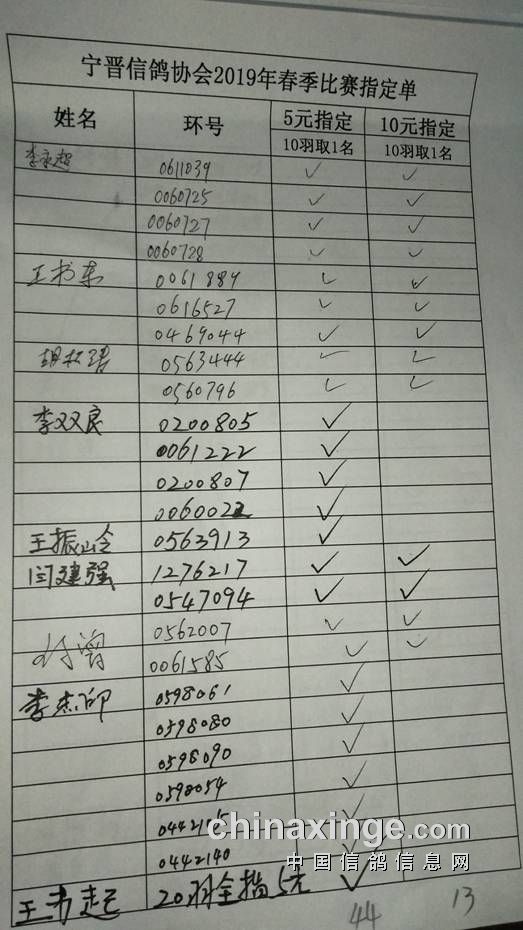 宁晋信鸽协会2019年春季比赛指定单
姓名 环号 5元指定 10元指定
10羽取1名 10羽取1名
李永超 0611039 ✓ ✓
0060725 ✓ ✓
0060727 ✓ ✓
0060728 ✓ ✓
王书东 0061889 ✓ ✓
0616527 ✓ ✓
0469044 ✓ ✓
0563444 ✓ ✓
0560796 ✓ ✓
李双良 0200805 ✓
0061222 ✓
0200807 ✓
0060022 ✓
王振岭 0563913 ✓
闫建强 1276217 ✓ ✓
0547094 ✓ ✓
0562007 ✓ ✓
0061585 ✓ ✓
李杰 0598061 ✓
0598080 ✓
0598090 ✓
0598054 ✓
✓
0442140 ✓
王书起 20羽全指5元 ✓
44 13
chinaxinge.com
中国信鸽信息网